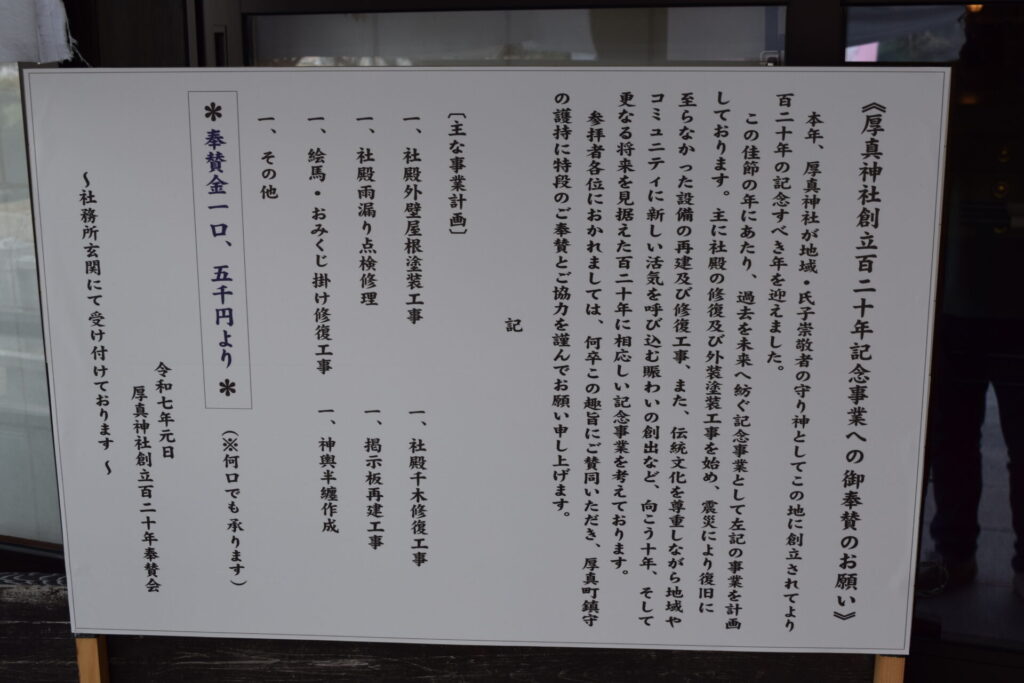 《厚真神社創立百二十年記念事業への御奉賛のお願い》
本年、厚真神社が地域・氏子崇敬者の守り神としてこの地に創立されてより
百二十年の記念すべき年を迎えました。
この佳節の年にあたり、過去を未来へ紡ぐ記念事業として左記の事業を計画
しております。主に社殿の修復及び外装塗装工事を始め、震災により復旧に
至らなかった設備の再建及び修復工事、また、伝統文化を尊重しながら地域や
コミュニティに新しい活気を呼び込む賑わいの創出など、向こう十年、そして
更なる将来を見据えた百二十年に相応しい記念事業を考えております。
参拝者各位におかれましては、何卒この趣旨にご賛同いただき、厚真町鎮守
の護持に特段のご奉賛とご協力を謹んでお願い申し上げます。
記
〔主な事業計画〕
一、社殿外壁屋根塗装工事　一、社殿千木修復工事
一、社殿雨漏り点検修理　一、掲示板再建工事
一、絵馬・おみくじ掛け修復工事　一、神輿半纏作成
一、その他
＊奉賛金一口、五千円より＊　（※何口でも承ります）
令和七年元日
厚真神社創立百二十年奉賛会
～社務所玄関にて受け付けております～